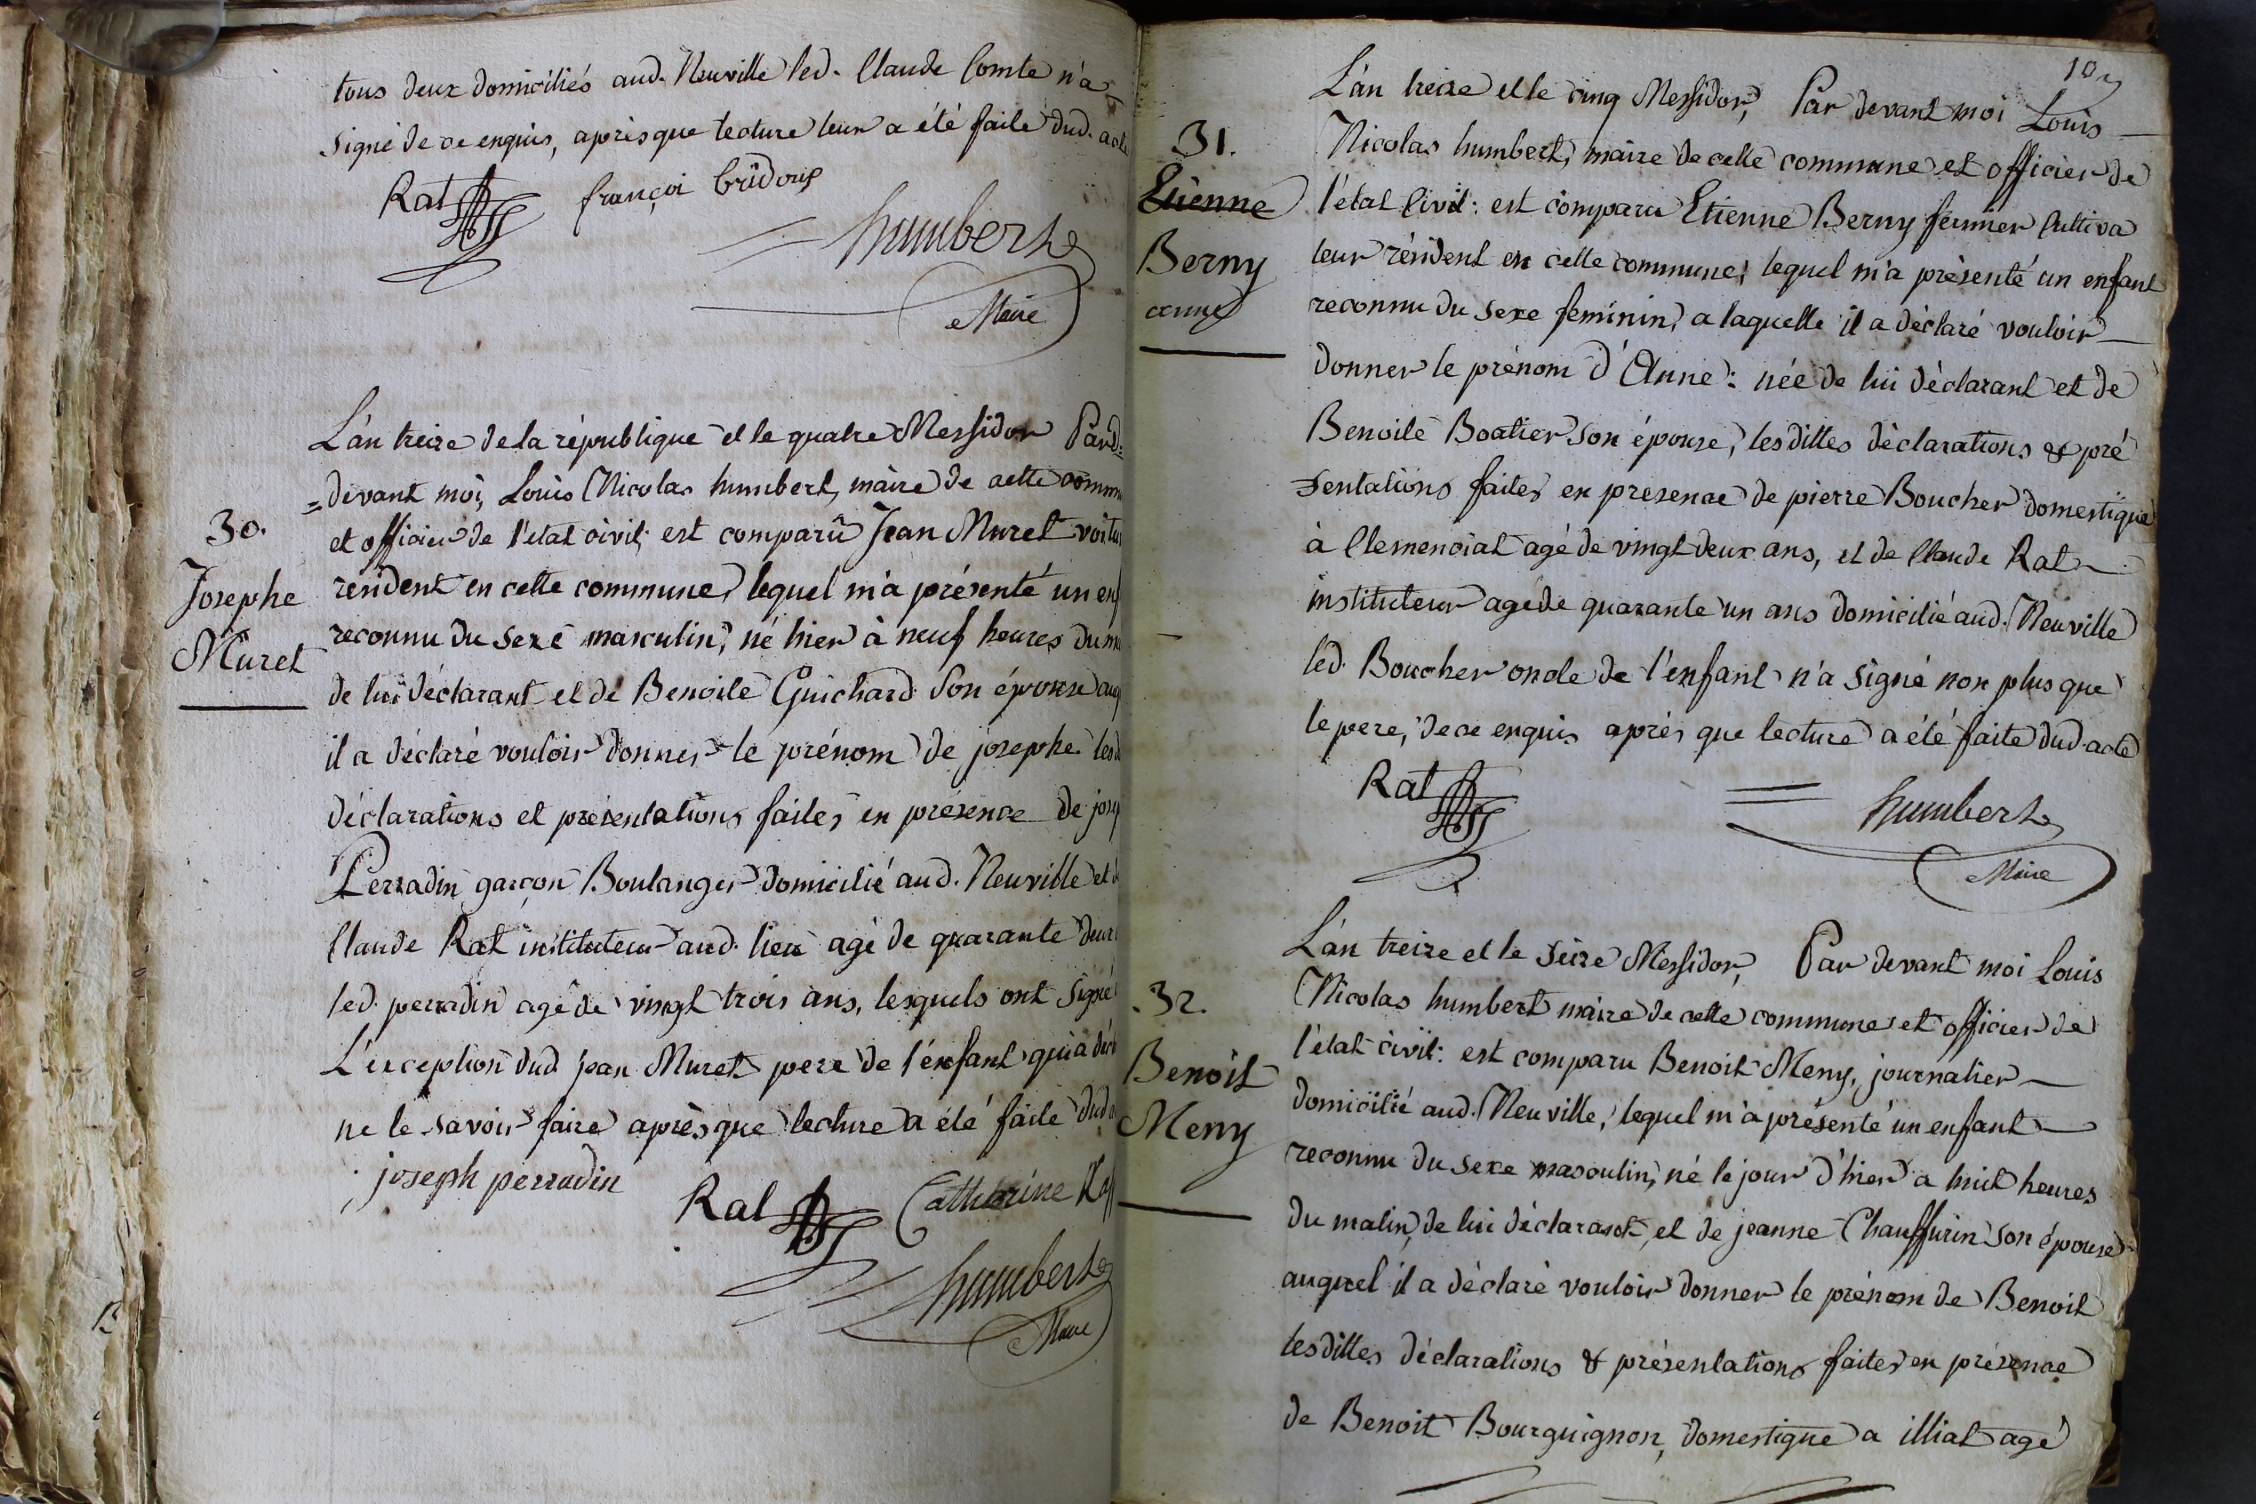 tous deux domiciliés aud. Neuville led. Claude Comte n'a
signé de ce enquis, après que lecture leur a été faite dud. acte
Rat françoi
humbert
Maire
L'an treize de la république et le quatre Messidor Pard=
=devant moi, Louis Nicolas humbert, maire de cette commu
30.
et officier de l'état civil; est comparû Jean Muret voitu
Josephe
résident en cette commune, lequel m'a présenté un enf
Muret
reconnu du sexe masculin, né hier à neuf heures du m
de lui déclarant et de Benoite Guichard son épouse auq
il a déclaré vouloir donner le prénom de josephe. les d
déclarations et présentations faites en présence de josep
Perradin garçon Boulanger domicilié aud. Neuville et d
Claude Rat instituteur aud. lieu agé de quarante deux
led. perradin agé de vingt trois ans, lesquels ont signé
L'exception dud jean Muret pere de l'enfant qui a décl
ne le savoir faire après que lecture a été faite dud a
joseph perradin
Rat Catherine
humbert
Maire
L'an treize et le cinq Messidor, Par devant moi Louis
31.
Nicolas humbert, maire de cette commune et officier de
Etienne
l'état Civil: est comparu Etienne Berny fermier Cultiva
Berny
teur résident en cette commune, lequel m'a présenté un enfant
anne
reconnu du sexe feminin, a laquelle il a déclaré vouloir
donner le prénom d'Anne: née de lui déclarant et de
Benoite Boatier son épouse, les dittes déclarations & pré
sentations faites en presence de pierre Boucher domestique
à Clemenciat agé de vingt deux ans, et de Claude Rat
instituteur agé de quarante un ans domicilié aud. Neuville
led. Boucher oncle de l'enfant n'a signé non plus que
le pere, de ce enquis après que lecture a été faite dud. acte
Rat
humbert
Maire
L'an treize et le seize Messidor, Par devant moi Louis
32.
Nicolas humbert maire de cette commune et officier de
Benoit
l'état civil: est comparu Benoit Meny, journalier
Meny
domicilié aud. Neuville, lequel m'a présenté un enfant
reconnu du sexe masculin, né le jour d'hier a huit heures
du matin, de lui déclarant, et de jeanne Chauffurin son épouse
auquel il a déclaré vouloir donner le prénom de Benoit
lesdittes déclarations & présentations faites en présence
de Benoit Bourguignon, domestique a illiat agé